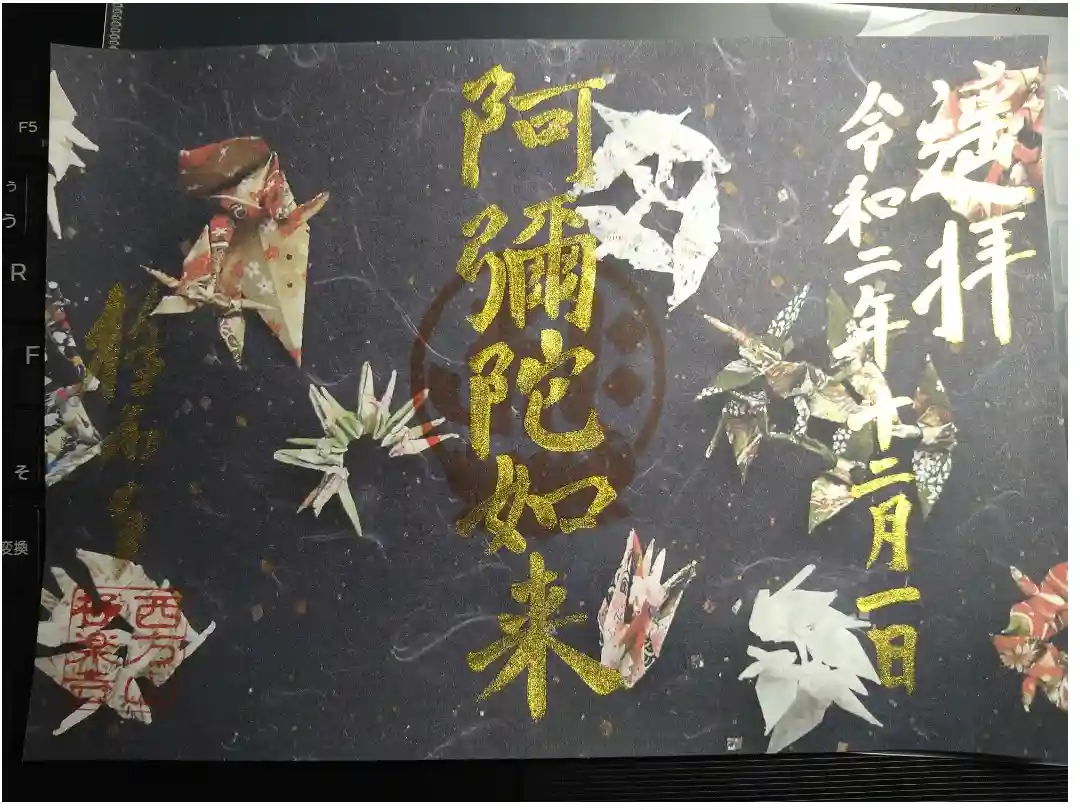 遥拝
令和二年十二月一日
阿彌陀如来
F5
ぅ
う
R
F
そ
変換